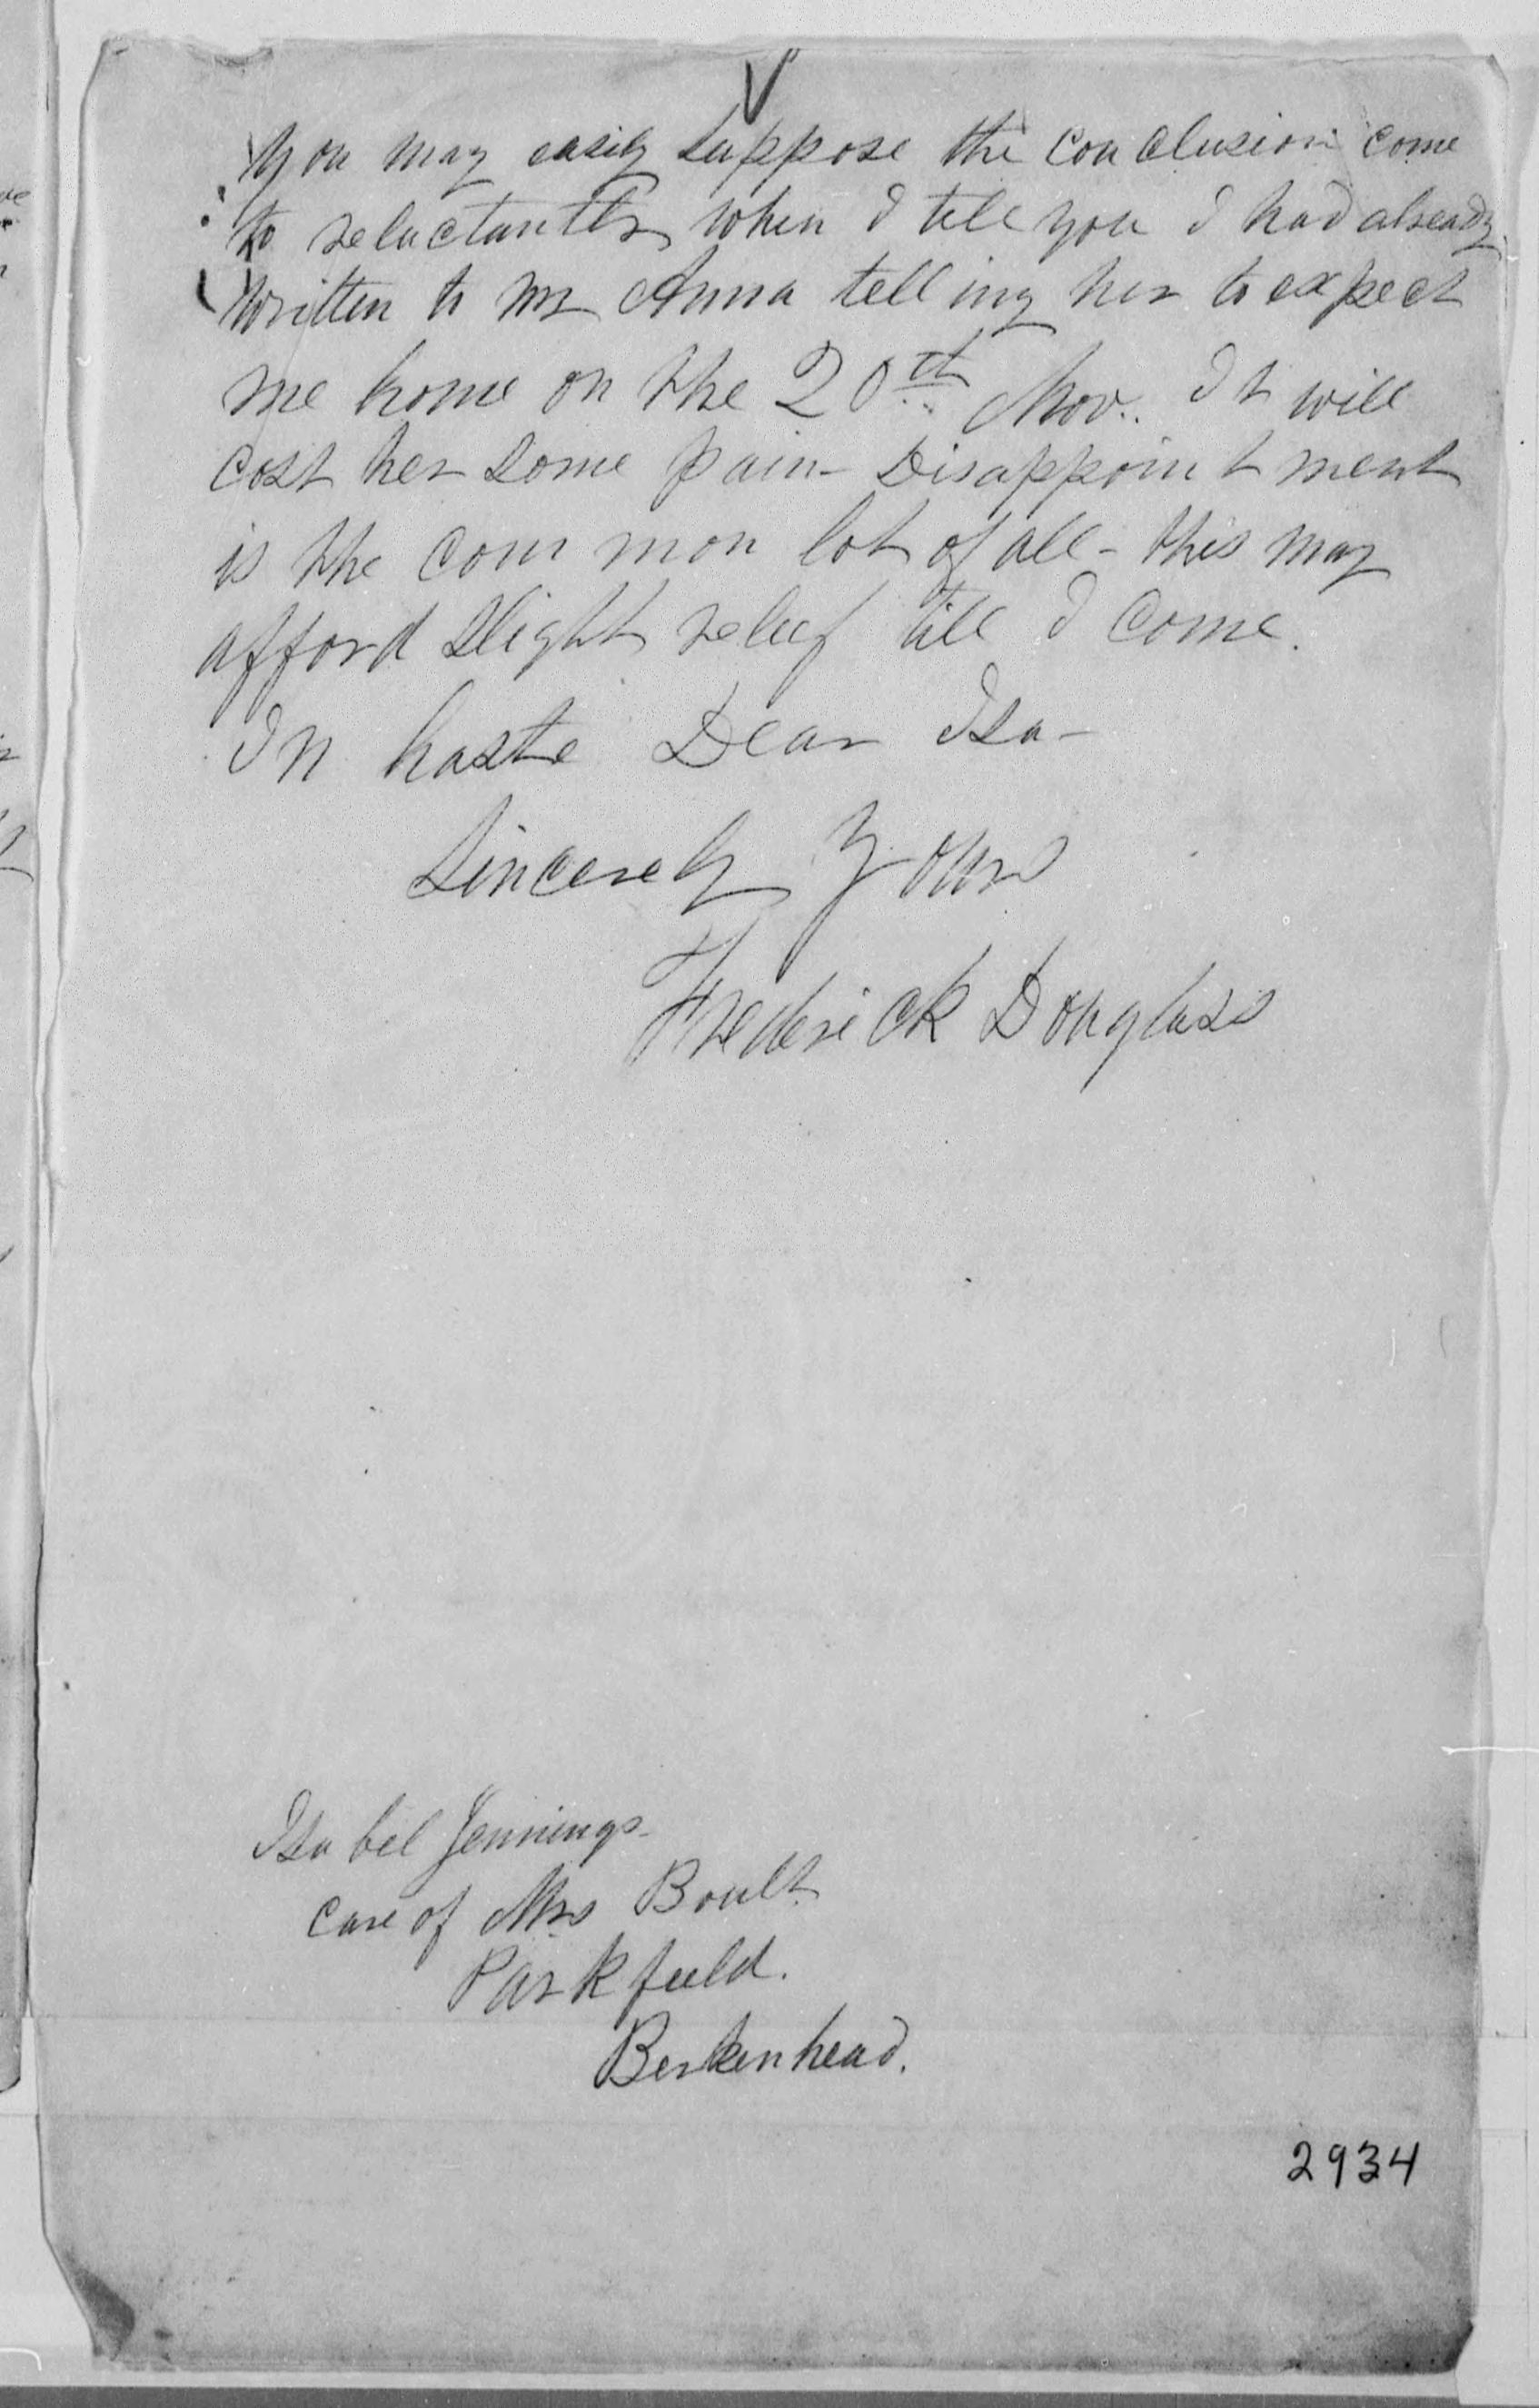 You may easily suppose the conclusion come
to reluctantly when I tell you I had already
written to my Anna telling her to expect
me home on the 20th Nov. It will
cost her some pain - Disappointment
is the common lot of all - this may
afford slight relief till I come.
In haste Dear Isa -
Sincerely Yours
Frederick Douglass
Isabel Jennings -
care of Mrs Boult
Parkfield.
Berkenhead.
2934